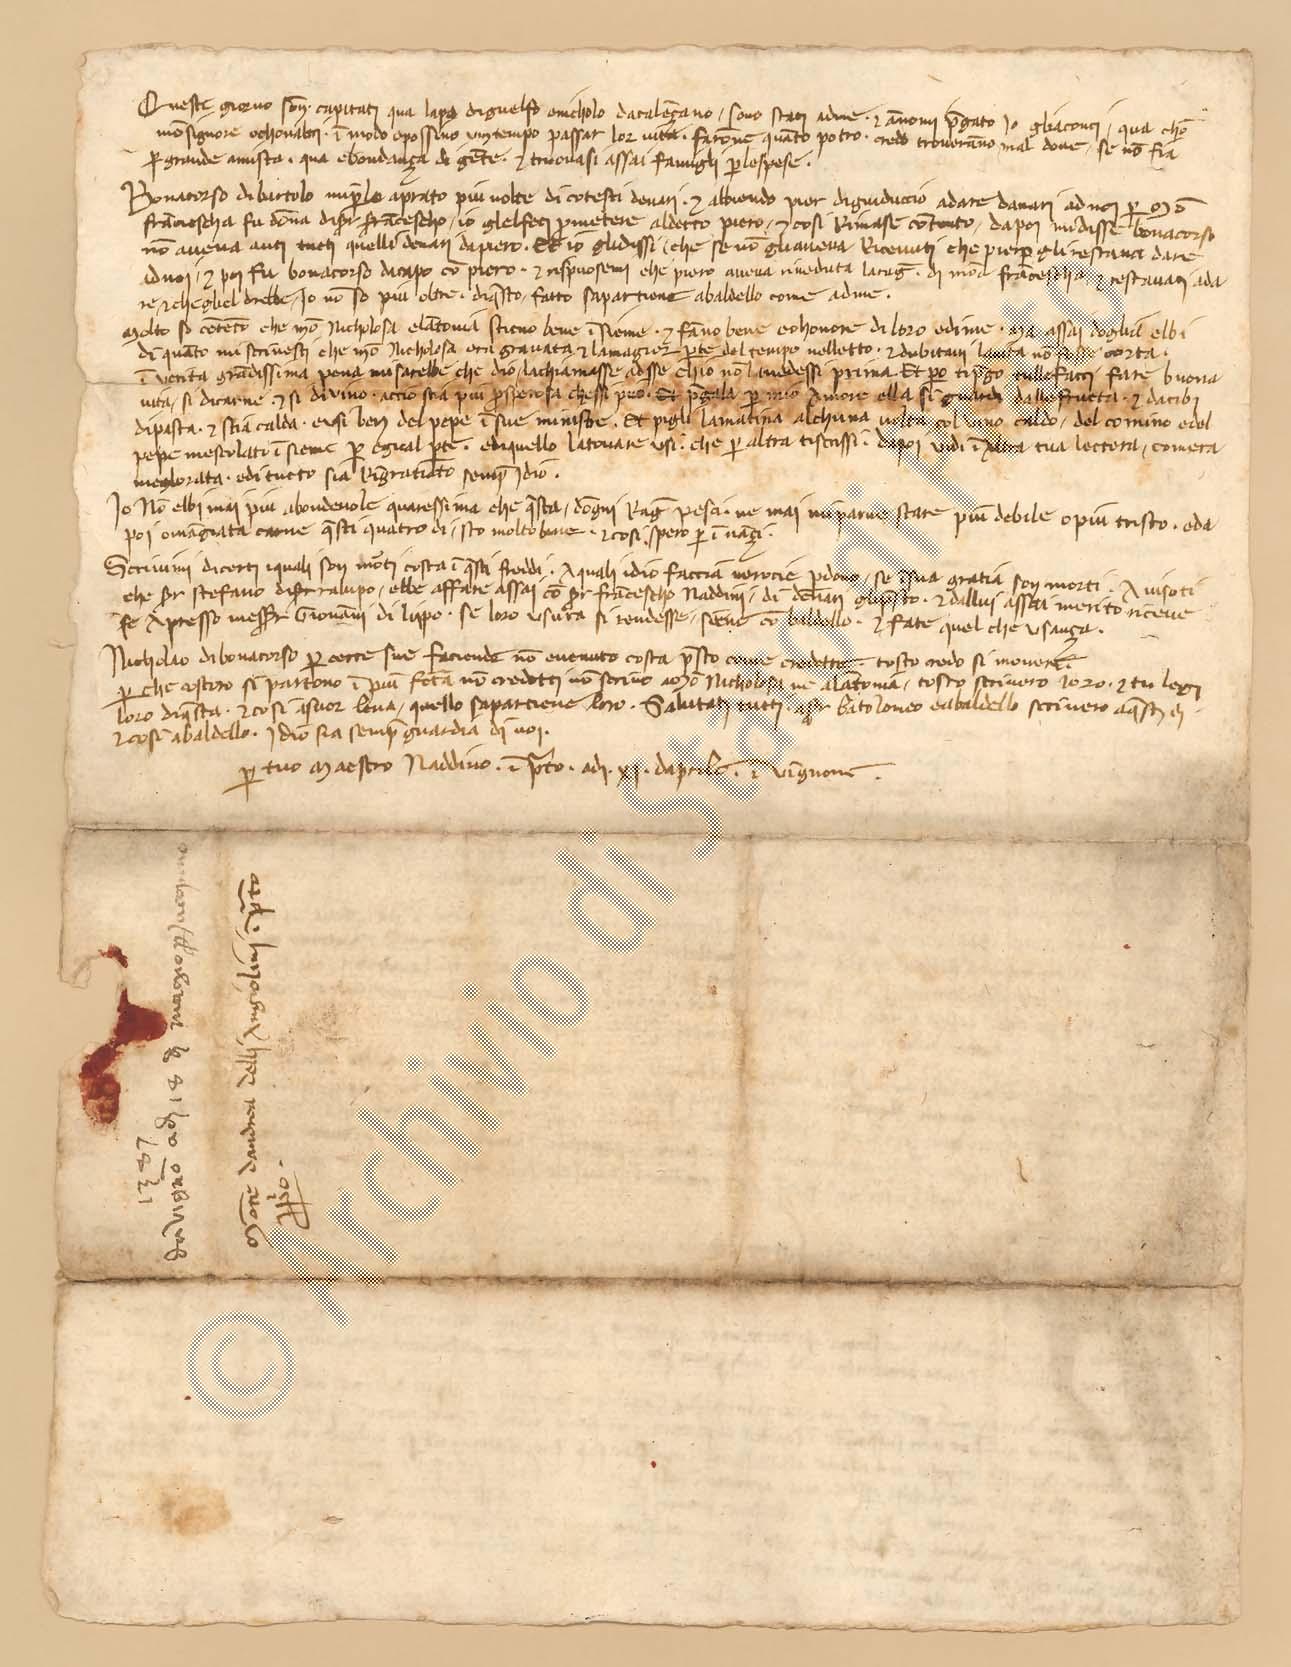 Questi giorno son capitati qua lapo diguelfo enicholo dacalençano / sono stati adme · et ànomi pregato io gliaconci / qua chō
monsignore ochonaltri · ī modo epossino un tempo passar lor vita · faronne quāto potro · credo troveranno mal dove / se nō fia
p grande amista · qua ebondança di gēte · et truovasi assai famigli p lespese ·
Bonacorso dibartolo aprato più volte di cotesti denari · et abbiendo pier diguiduccio adare danari adnoi p mō
franciescha fu dōna diser francescho / io glelfeci pmetere aldetto piero / et cosi rimase cōtento / dapoi midisse bonacorso
nō aveva auti tutti quelli denari dapiero · Et io glidissi / che se nō gliaveva ricevuti che piero gli restava dare
adnoi / et poi fu bonacorso dacapo cō piero · et rispuosemi che piero aveva riveduta larag · di mōa franciescha / et restavati ada
re / et chegliel drebbe / Io nō so più oltre · diqsto / fatto sapartiene abaldello come adme ·
Molto so cōtēto che mōa Nicholosa elātonia stieno bene īsieme · et fāno bene eohonore di loro edime · ma assai doglia elbi
di quāto mi scrivesti che mōa Nicholosa era gravata et lamagior pte del tempo nelletto · et dubitavi lavita nō fosse corta ·
ī verita grādissima pena misarebbe che dio lachiamasse adsse chio nō lavedessi prima · Et po tipgo tullefacci fare buona
vita / si dicarne et si divino · accio stia più psperosa chessi puo · Et pgala p mio Amore ella si guardi dallefrutta · et dacibi
dipasta · et stia calda · eusi ben del pepe ī sue minestre · Et pigli lamatina alchuna volta col vino caldo / del comino edel
pepe mescolati īsieme p egual pte · ediquello latovare usi · che p altra tiscrissi · dapoi vidi ī altra tua lettera / comera
megliorata · edi tutto sia Ringratiato semp Idio ·
Io Nō elbi mai più abondevole quaressima che qsta / dōgni Rag Pesci · ne mai mi parve stare più debile opiù tristo · eda
poi omāgiata carne qsti quatro dì / sto molto bene · et cosi spero p ināçi ·
Scrivimi dicerti iquali son morti costa ī qsti freddi · A quali idio faccia veracie pdono / se ī sua gratia son morti · Avisoti
che ser stefano diser ralupo / ebbe affare assai cō ser francescho Naddini / di denari glipsto · et dallui assai merito riceve
te Apresso messer Giovāni di lippo · Se loro usura si rendesse / sēne cō baldello · et fate quel che usança ·
Nicholao dibonacorso p certe sue faciende nō evenuto costa psto come credette · tosto credo si movera ·
p che costoro si partono ī più fretta nō credetti nō scrivo amōa Nicholosa ne alātonia / tosto scrivero loro · et tu legi
loro diqsta · et cosi asuor lena / quello sapartiene loro · Salutati tutti · aser bartolomeo edabaldello scrivero aqsti dì ·
et cosi abaldello · Idio sia semp guardia di voi ·
p tuo Maestro Naddino · ī pto · adi · xi · daprile · ī vignone ·
1387
da Vignō adì 18 di magio
Monte dandrea delli Angiolini ī pto
ppo ·